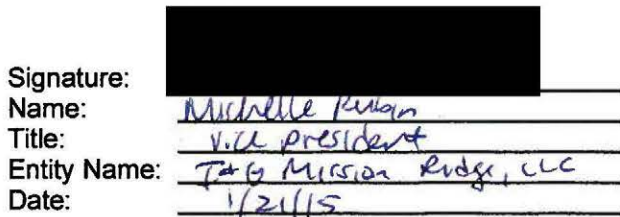 Signature:
Name: Michelle Rubin
Title: v.ce president
Entity Name: T&G Mission Ridge, LLC
Date: 1/21/15